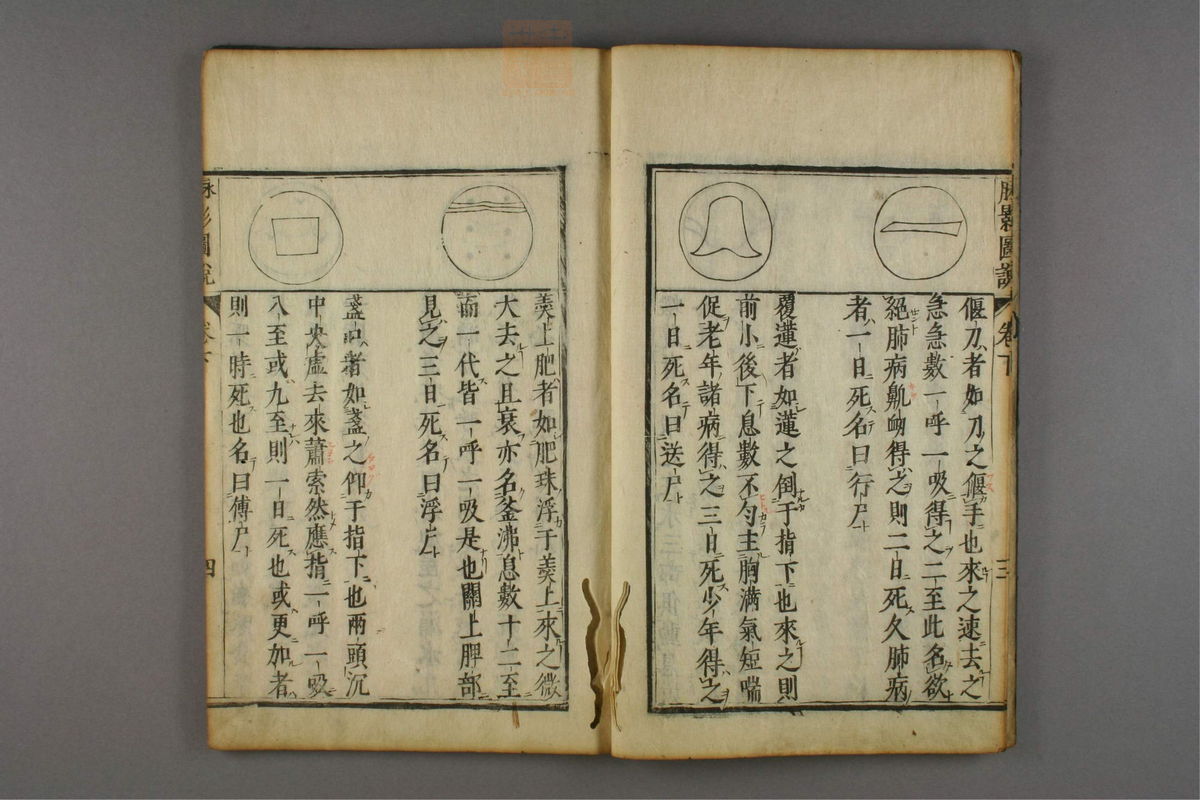 脉影圖說 卷下 三
偃刀者如刀之偃手也來之速去之
急急數一呼一吸得之二至此名欲
絕肺病鼽衂得之則二日死久肺病
者一日死名曰行尸
覆蓮者如蓮之倒于指下也來之則
前小後下息數不勻主胸滿氣短喘
促老年諸病得之三日死少年得之
一日死名曰送尸
羹上肥者如肥珠浮于羹上來之微
大去之且衰亦名釜沸息數十二至
而一代皆一呼一吸是也關上脾部
見之三日死名曰浮尸
盞口者如盞之仰于指下也兩頭沉
中央虛去來蕭索然應指二呼一吸
入至或九至則一日死也或更加者
則一時死也名曰傅尸
脉影圖說 卷下 四